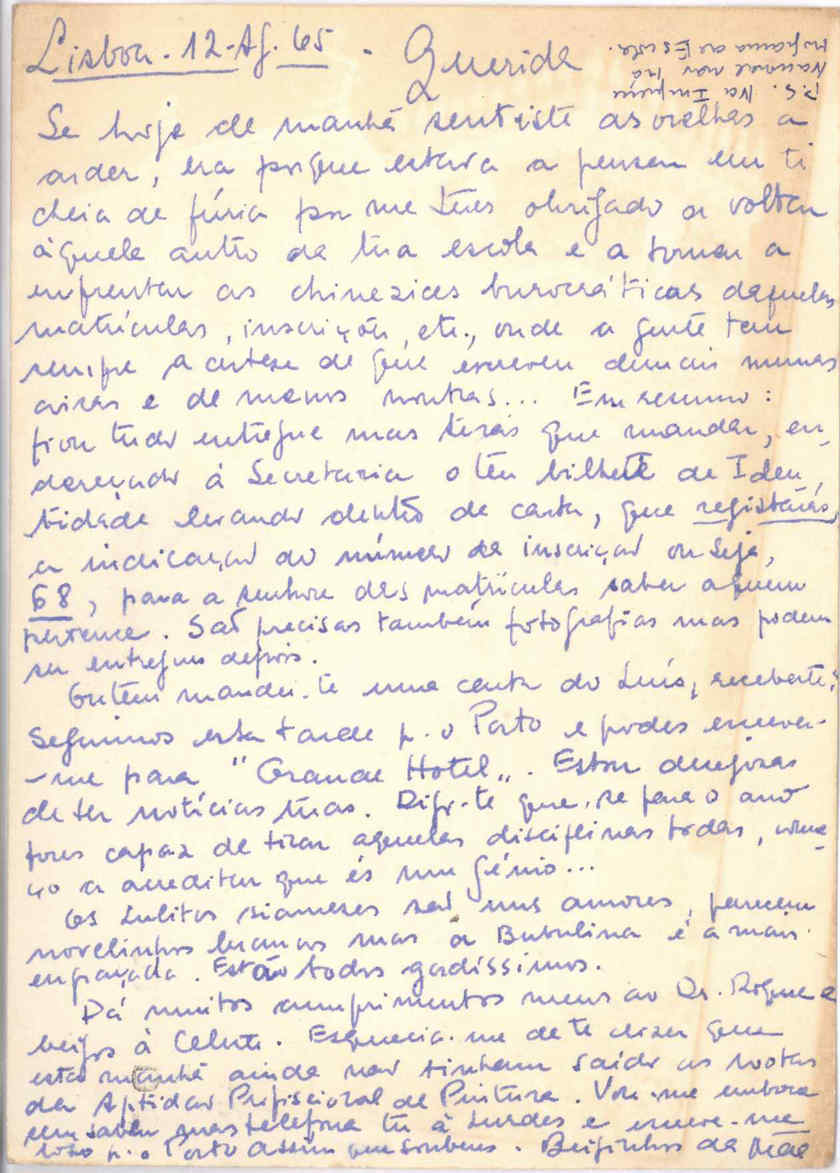 Lisboa - 12-Ag. 65 - Querida
Se hoje de manhã sentiste as orelhas a
arder, era porque estava a pensar em ti
cheia de fúria por me teres obrigado a voltar
àquele antro da tua escola e a tornar a
enfrentar as chinezices burocráticas daquelas
matrículas, inscrições, etc., onde a gente tem
sempre a certeza de que escreveu demais numas
coisas e de menos noutras... Em resumo:
ficou tudo entregue mas terás que mandar, en-
dereçado à Secretaria o teu bilhete de Iden-
tidade levando dentro da carta, que registarás,
a indicação do número da inscrição ou seja,
68, para a senhora das matrículas saber a quem
pertence. São precisas também fotografias mas podem
ser entregues depois.
Ontem mandei-te uma carta do Luís, recebeste?
Seguimos esta tarde p. o Porto e podes escrever-
-me para "Grande Hotel". Estou desejosa
de ter notícias tuas. Digo-te que, se para o ano
fores capaz de tirar aquelas disciplinas todas, come-
ço a acreditar que és um génio...
Os lulitos siameses são uns amores, parecem
novelinhos brancos mas a Bubulina é a mais
engraçada. Estão todos gordíssimos.
Dá muitos cumprimentos meus ao Dr. Roque e
beijos à Celeste. Esquecia-me de te dizer que
esta manhã ainda não tinham saído as notas
da Aptidão Profissional de Pintura. Vou-me embora
sem saber mas telefona tu à Lurdes e escreve-me
logo p. o Porto assim que souberes. Beijinhos da Mãe
P.S. Na Imprensa
Nacional não há
programa da Escola.